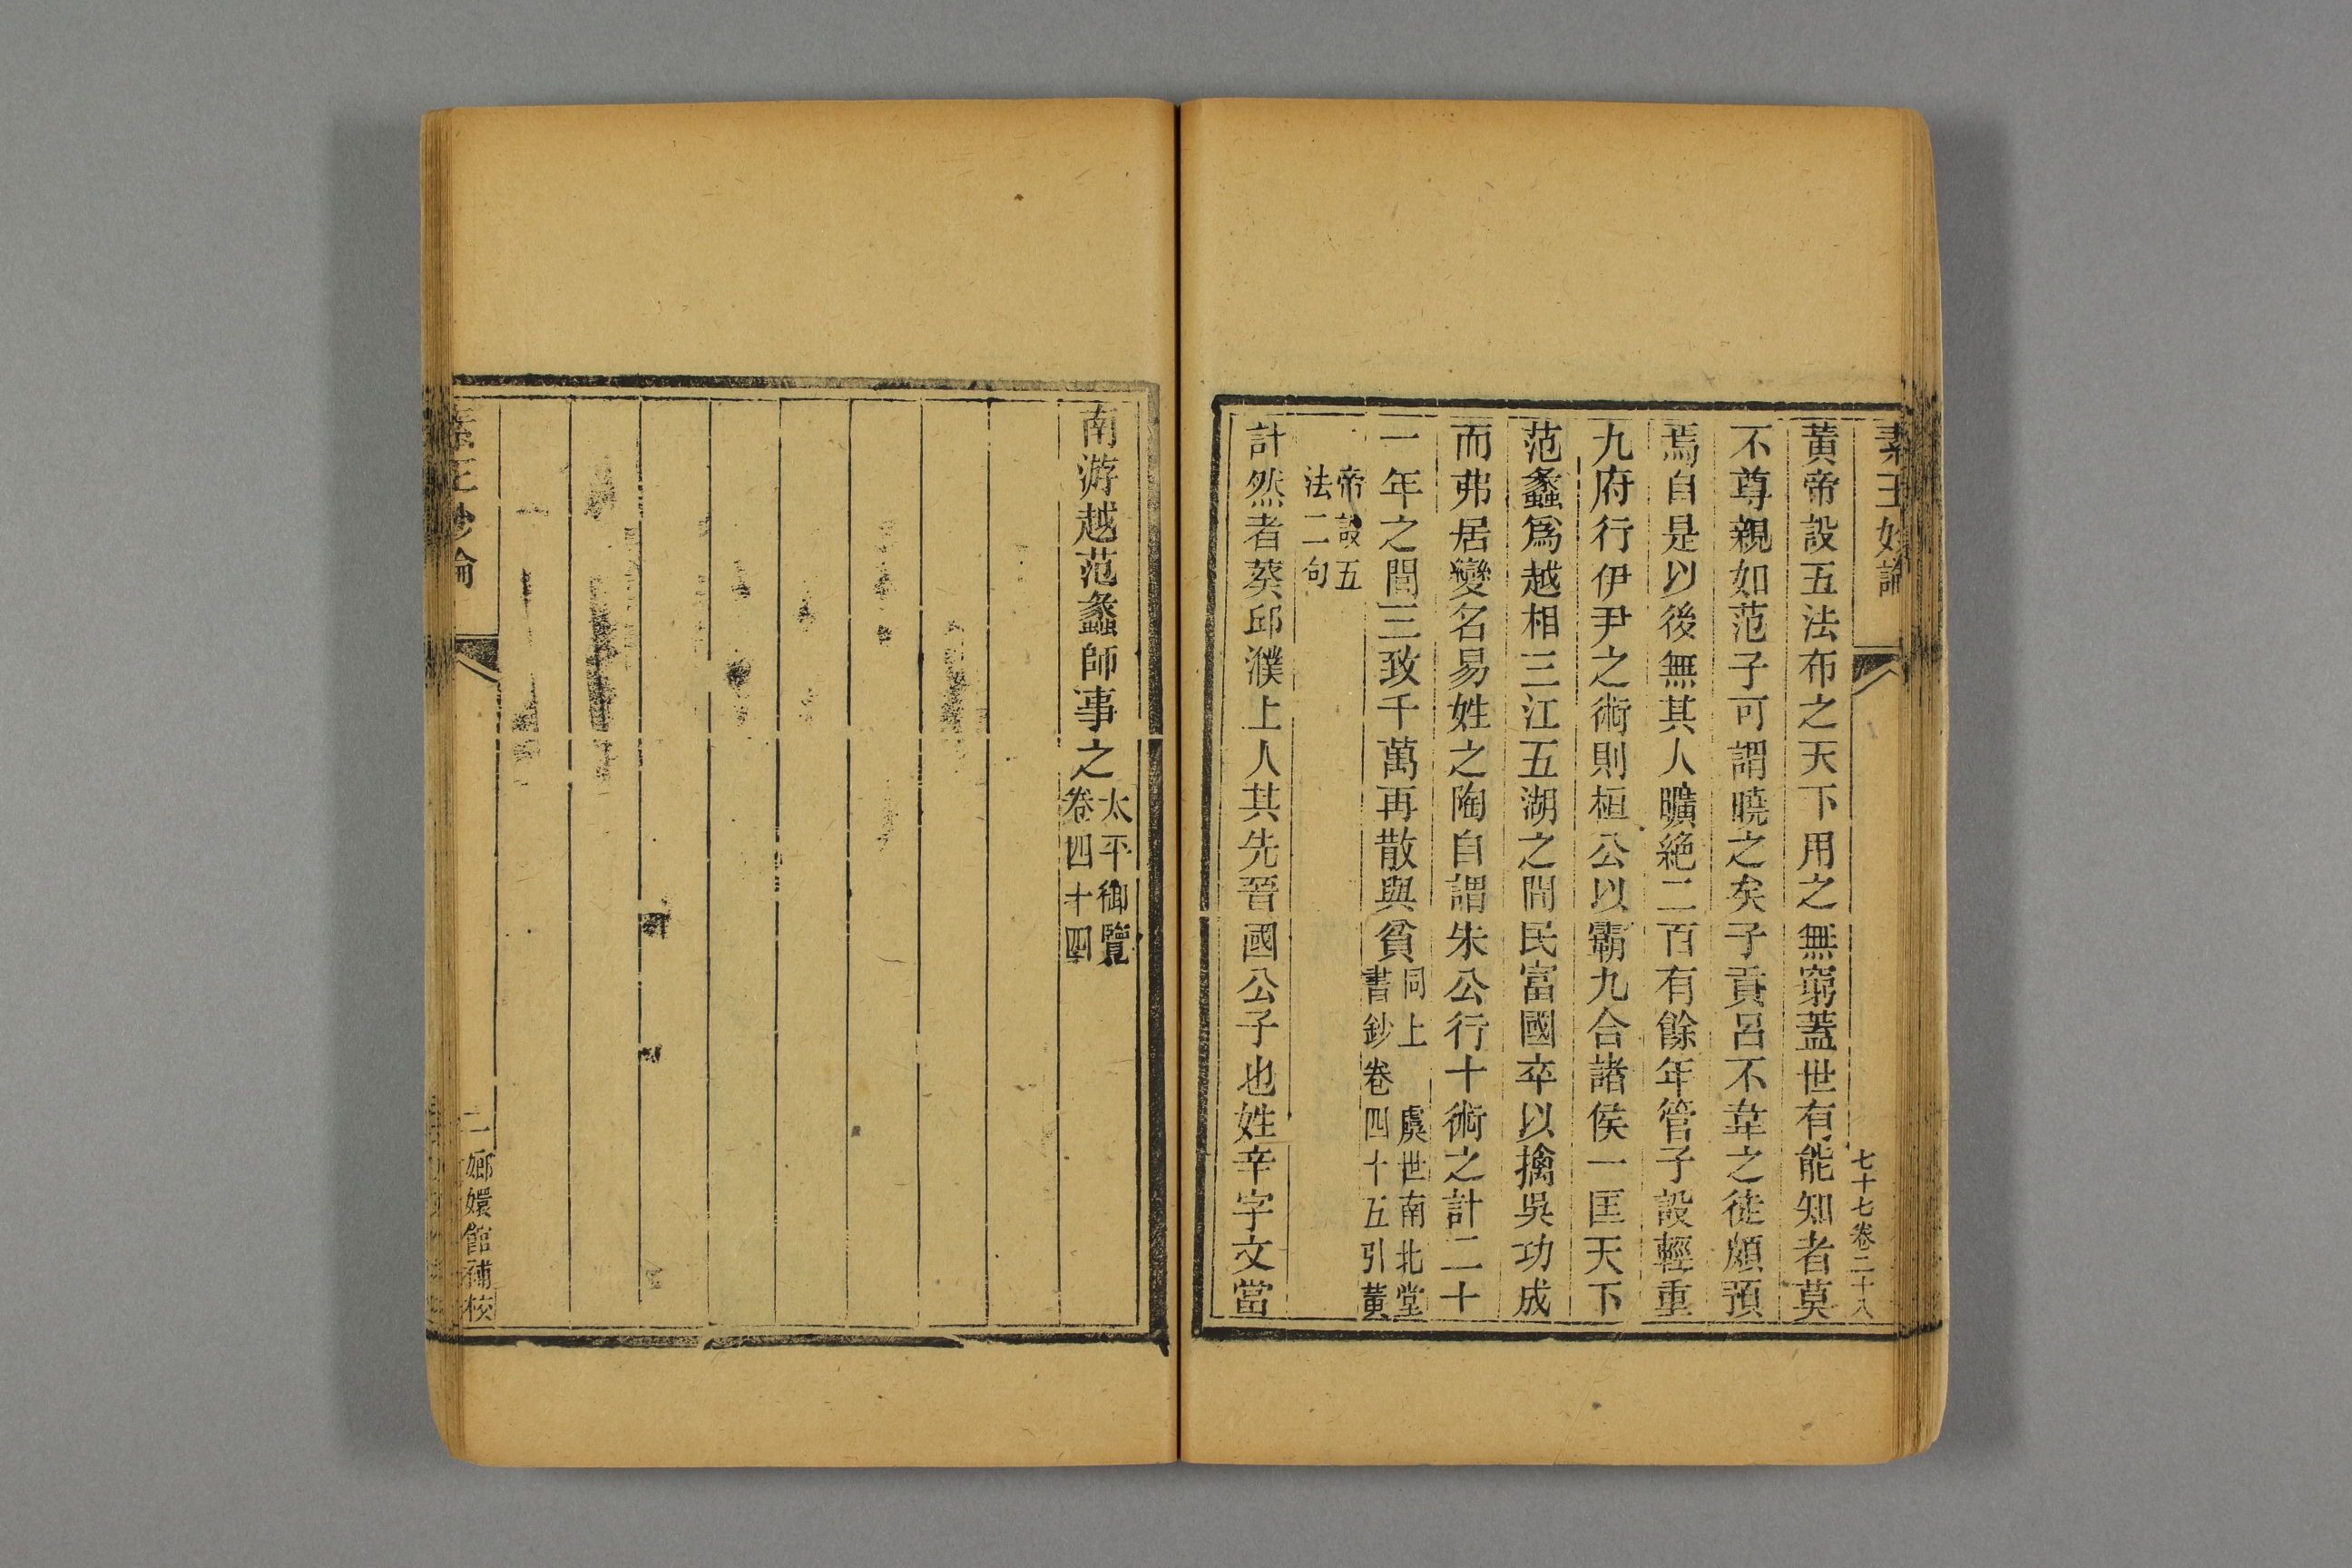 素王妙論
七十七卷二十八
黃帝設五法布之天下用之無窮蓋世有能知者莫
不尊親如范子可謂曉之矣子貢呂不韋之徒頗預
焉自是以後無其人曠絶二百有餘年管子設輕重
九府行伊尹之術則桓公以霸九合諸侯一匡天下
范蠡爲越相三江五湖之間民富國卒以擒吳功成
而弗居變名易姓之陶自謂朱公行十術之計二十
一年之間三致千萬再散與貧同上 虞世南北堂
書鈔卷四十五引黃
帝設五
法二句
計然者葵邱濮上人其先晉國公子也姓辛字文當
南游越范蠡師事之太平御覽
卷四十四
素王妙論
二
嫏嬛館補校